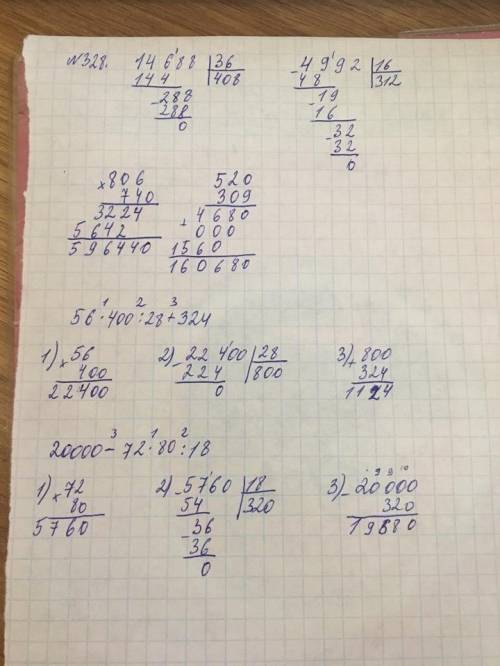 №328. 14688 |36
144 |408
-288
288
0
-4992 |16
48 |312
-19
16
-32
32
0
×806
740
3224
5642
596440
520
309
+4680
000
1560
160680
1 2 3
56·400:28+324
1) ×56
400
22400
2) -22400 |28
224 |800
0
3) +800
324
1124
3 1 2
20000-72·80:18
1) ×72
80
5760
2) -5760 |18
54 |320
-36
36
0
3) -20000
320
19680